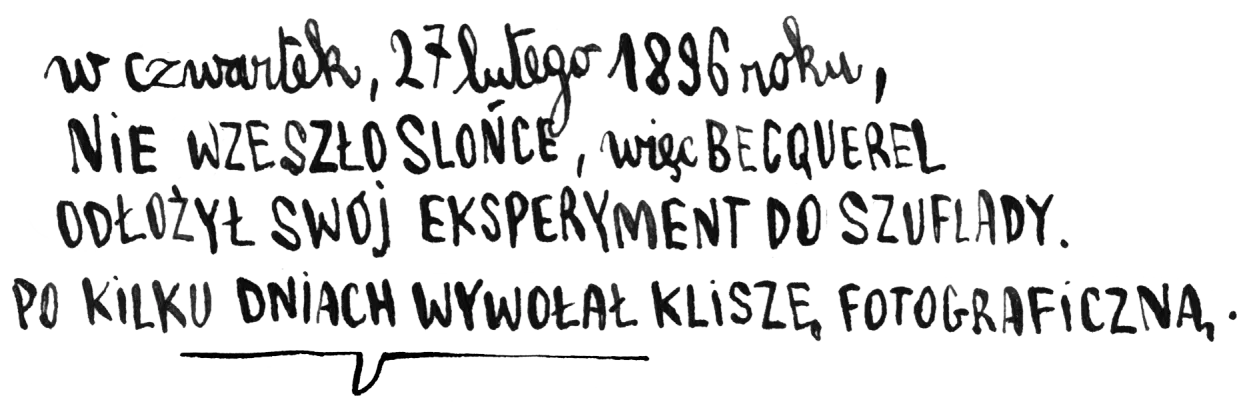 w czwartek, 27 lutego 1896 roku,
NIE WZESZŁO SLOŃCE, więc BECQUEREL
ODŁOŻYŁ SWÓJ EKSPERYMENT DO SZUFLADY.
PO KILKU DNIACH WYWOŁAŁ KLISZĘ FOTOGRAFICZNĄ.